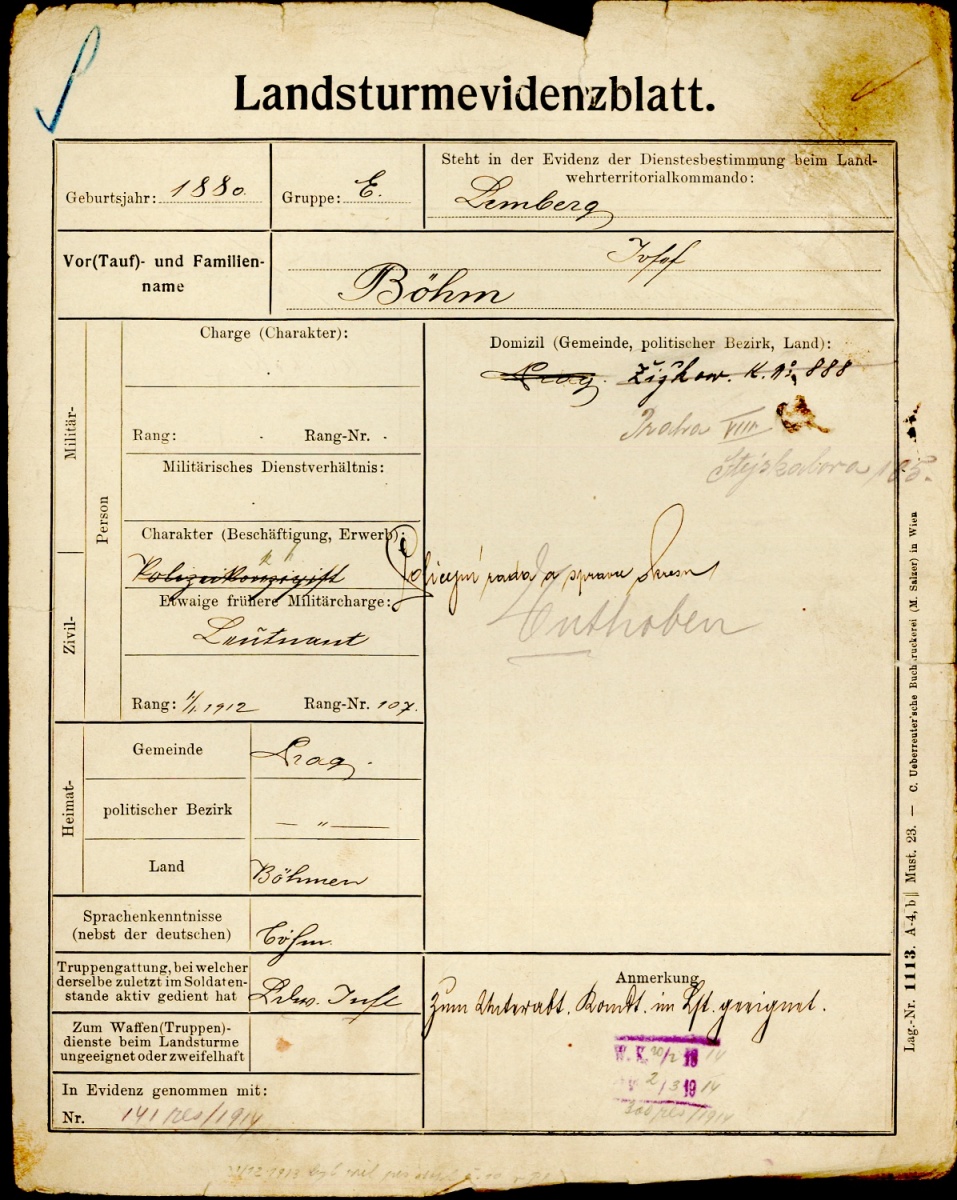 Landsturmevidenzblatt.
Geburtsjahr: 1880.
Gruppe: E.
Steht in der Evidenz der Dienstesbestimmung beim Land-
wehrterritorialkommando:
Lemberg
Vor(Tauf)- und Familien-
name
Josef
Böhm
Militär-
Zivil-
Person
Charge (Charakter):
Rang:
Rang-Nr.
Militärisches Dienstverhältnis:
Charakter (Beschäftigung, Erwerb):
Etwaige frühere Militärcharge:
Leutnant
Rang: 1/1. 1912
Rang-Nr. 107.
Domizil (Gemeinde, politischer Bezirk, Land):
Prag. Žižkow. K. No. 888
Praha VIII
105.
Policejní rada a
Enthoben
Heimat-
Gemeinde
Prag.
politischer Bezirk
— „ —
Land
Böhmen
Sprachenkenntnisse
(nebst der deutschen)
böhm.
Truppengattung, bei welcher
derselbe zuletzt im Soldaten-
stande aktiv gedient hat
Ldw. Inft
Zum Waffen(Truppen)-
dienste beim Landsturme
ungeeignet oder zweifelhaft
In Evidenz genommen mit:
Nr. 141 res/1914
Anmerkung
Zum Unterabt. Komdt. im Lst. geeignet.
W. K.
19 14
300 res/1914
Lag.-Nr. 1113. A-4, b || Must. 23. — C. Ueberreuter'sche Buchdruckerei (M. Salzer) in Wien